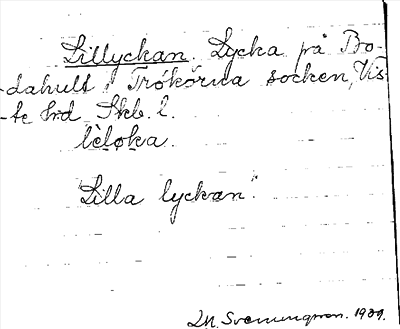 Lillyckan. Lycka på Bo-
dahult i Trökörna socken, Vis-
-te hrd Skb. l.
lèlọka.
"Lilla lyckan".
Svenungson. 1929.